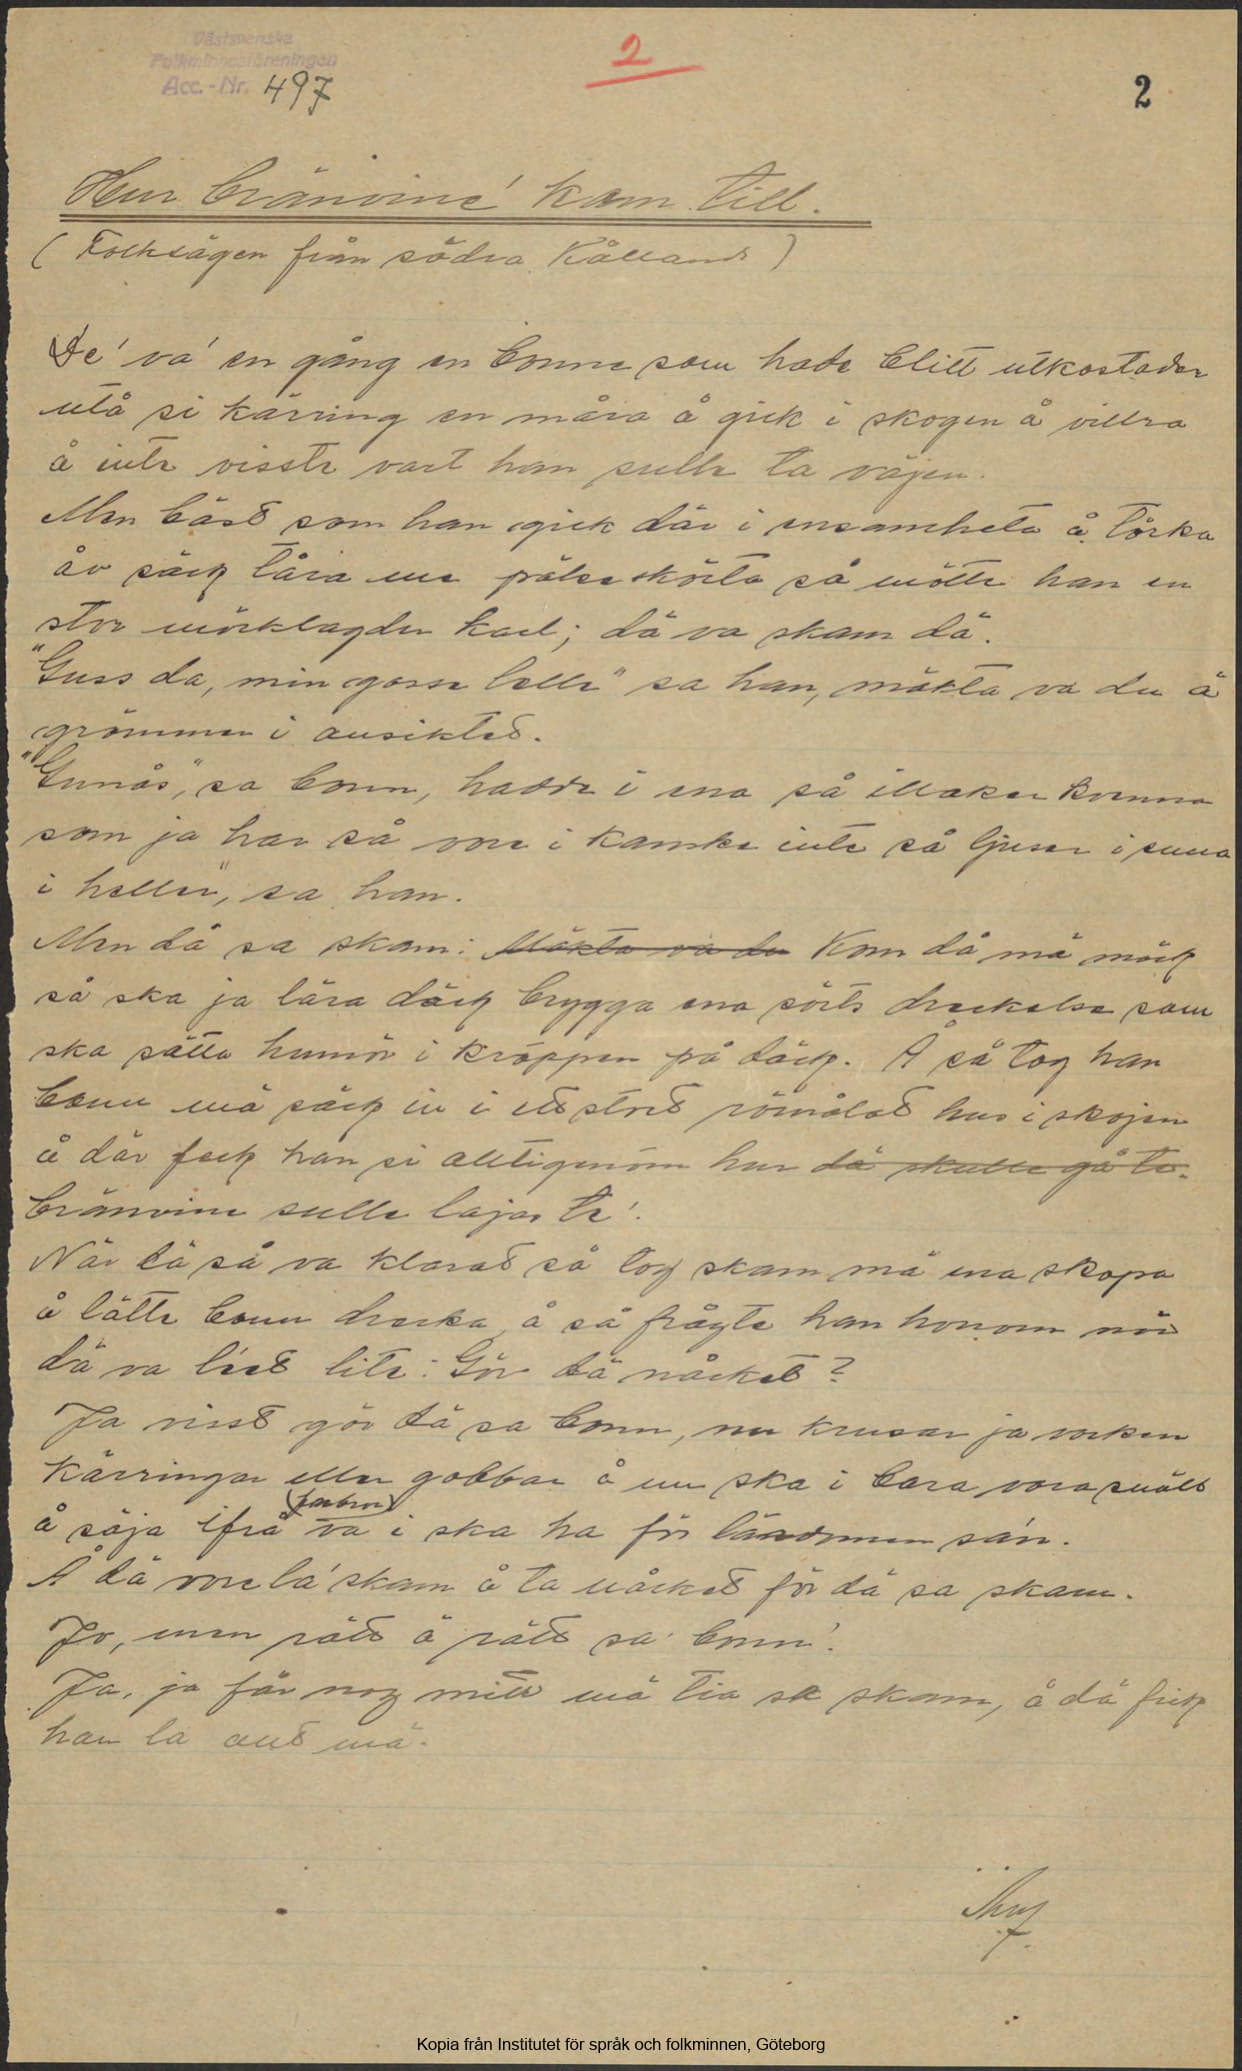 Västsvenska
Folkminnesföreningen
Acc.-Nr. 497
2
2
Hur bränvine' kom till.
(Folksägen från södra Kålland)
De' va' en gång en bonne som hade blitt utkastader
utå si kärring en måra å gick i skogen å villra
å inte visste vart han sulle ta väjen.
Men bäst som han gick där i ensamheta å tårka
åv säcg tåra me pälseskörta så mötte han en
stor mörklagder karl; dä va skam dä.
"Guss da, min gosse lelle" sa han, mäkta va du ä
grömmen i ansikted.
"Gunås", sa bonn, hadde i ena så illaker kvenna
som ja har så vore i kanske inte så ljuser i suna
i heller", sa han.
Men då sa skam: Mäkta va du Kom då mä mäcg
så ska ja lära däcg brygga ena sörts dreckelse som
ska sätta humör i kroppen på däcg. Å så tog han
bonn mä säcg in i ett stort römålat hus i skojen
å där fecg han si alltigenöm hur dä skulle gå te.
bränvine sulle lajas te'.
När dä så va klarat så tog skam mä ena skopa
å lätte bonn drecka, å så frågte han honom när
dä va lied lite: Gör dä nåcked?
Ja visst gör dä sa bonn, nu krusar ja varken
kärringar eller gobbar å nu ska i bara vara snäll
å säja ifrå va i ska ha för lärdommen sa'n.
(farbror)
Å dä vore la' skam å ta nåcked för dä sa skam.
Jo, men rätt ä rätt sa bonn'.
Ja, ja får nog mitt mä tia sa skam, å dä ficg
han la ant mä.
Kopia från Institutet för språk och folkminnen, Göteborg